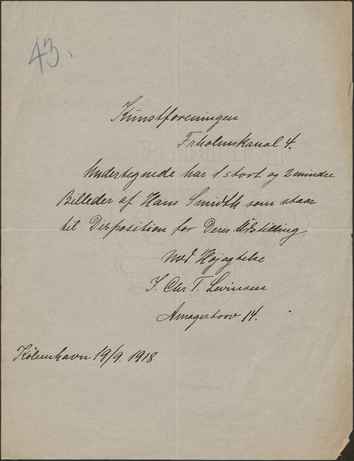 43.
Kunstforeningen
Frholmskanal 4.
Undertegnede har 1 stort og 2 mindre
Billeder af Hans Smidth som staar
til Disposition for Deres Udstilling
Med Højagtelse
J. Chr. T. Levinsen
Amagertorv 14.
København 19/9. 1918